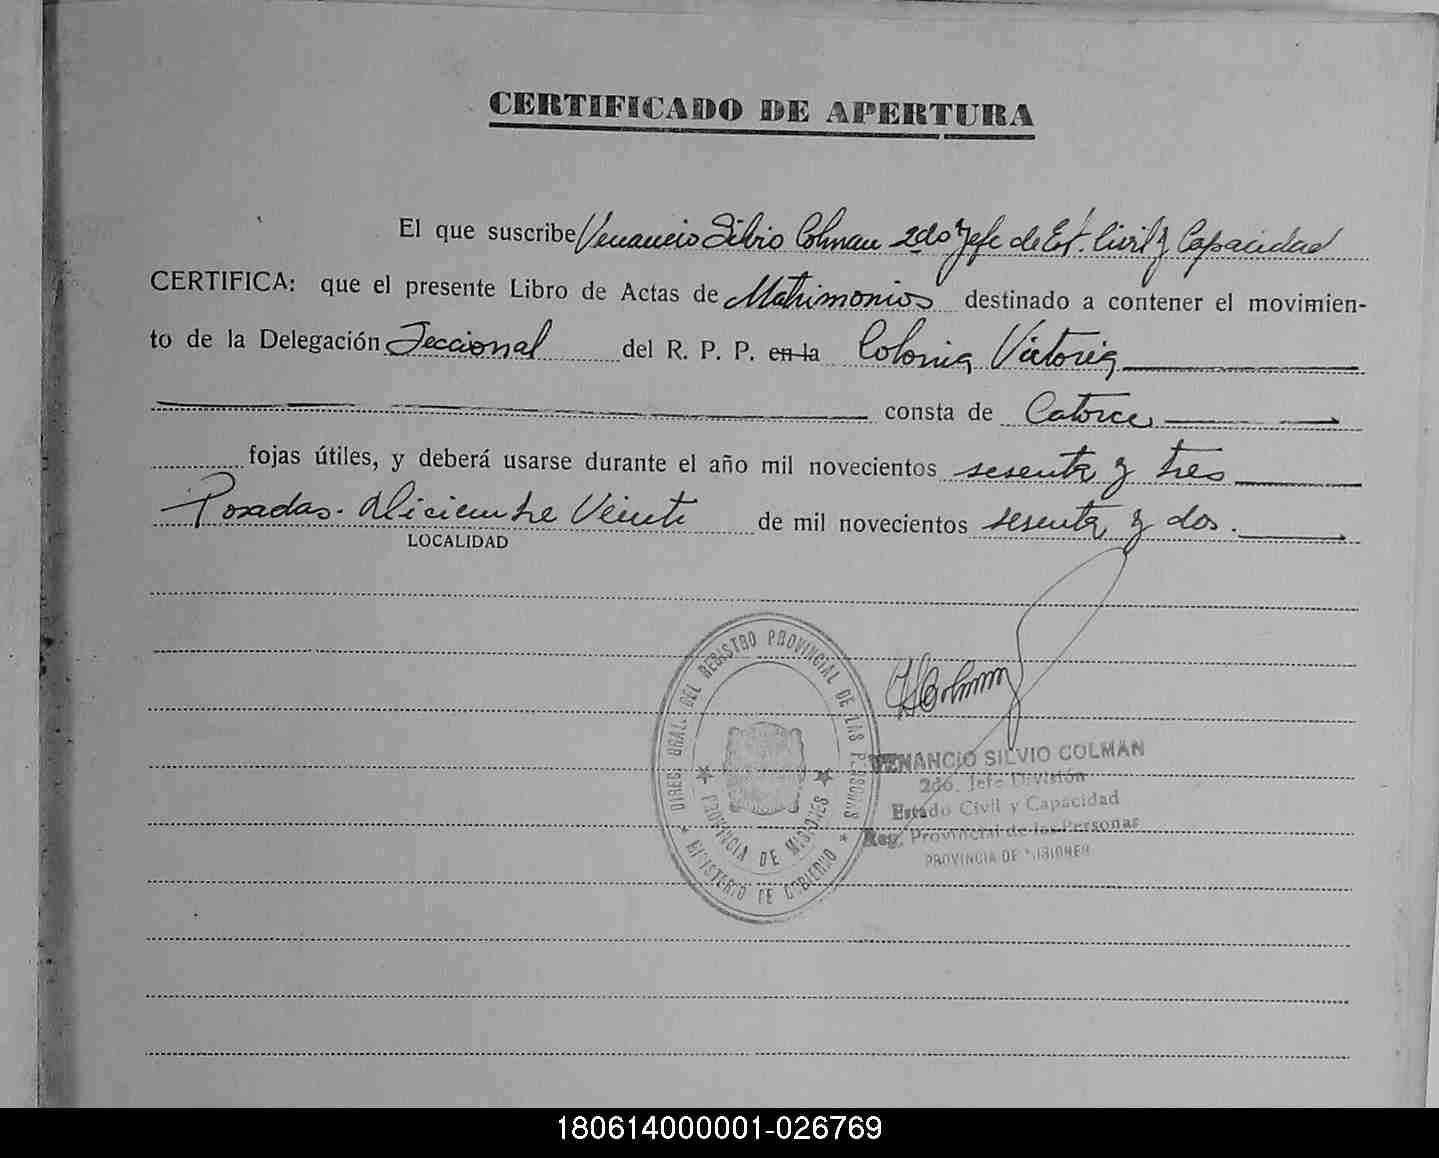 CERTIFICADO DE APERTURA
El que suscribe Venancio Silvio Colman 2do Jefe de Est. Civil y Capacidad
CERTIFICA: que el presente Libro de Actas de Matrimonios destinado a contener el movimien-
to de la Delegación Seccional del R. P. P. en la Colonia Victoria
consta de Catorce
fojas útiles, y deberá usarse durante el año mil novecientos sesenta y tres
Posadas. Diciembre Veinte de mil novecientos sesenta y dos.
LOCALIDAD
DIREC. GRAL. DEL REGISTRO PROVINCIAL DE LAS PERSONAS
PROVINCIA DE MISIONES
MINISTERIO DE GOBIERNO
VSColman
VENANCIO SILVIO COLMAN
2do. Jefe División
Estado Civil y Capacidad
Reg. Provincial de las Personas
PROVINCIA DE MISIONES
180614000001-026769